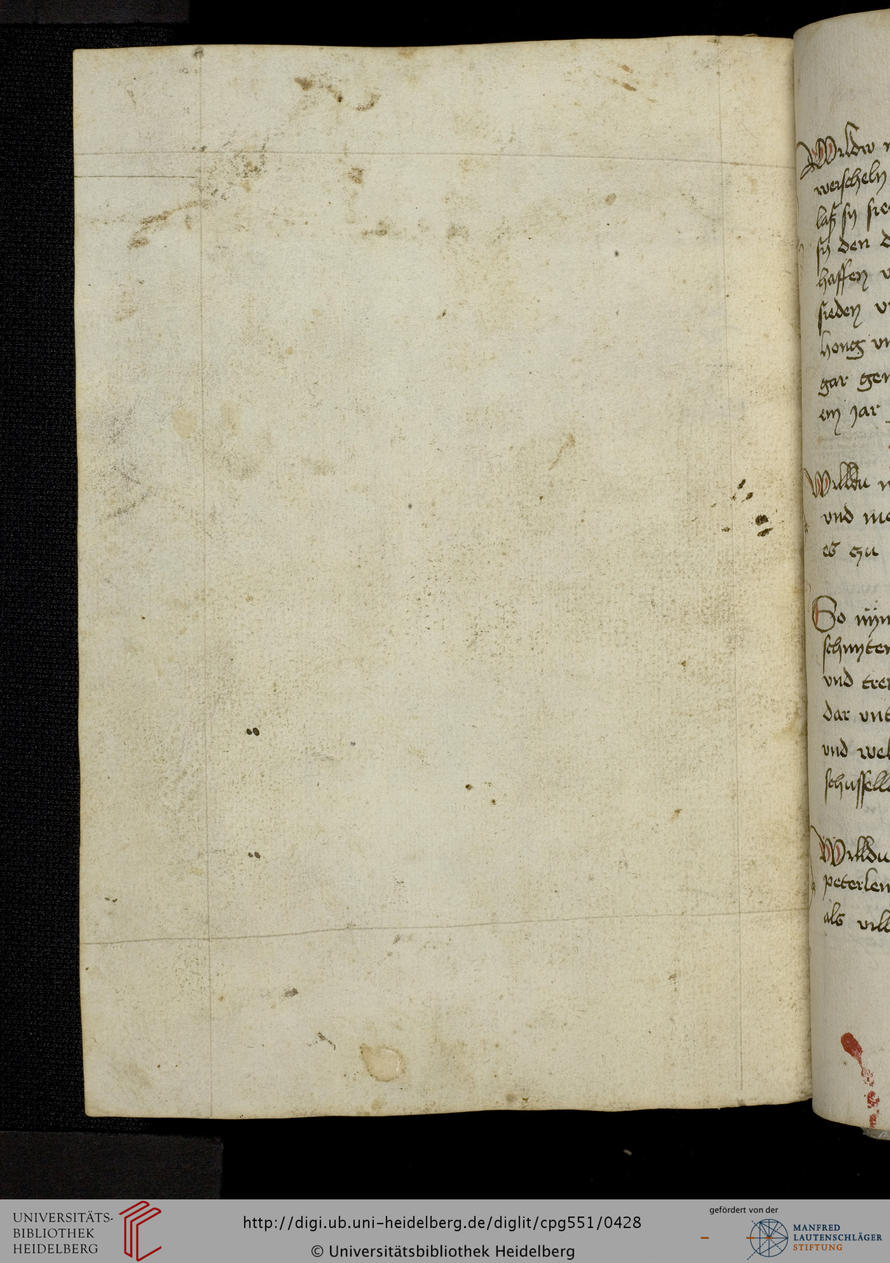 Wildw
werscheln
laß sy sie
sy den d
haffen v
sieden v
hong vn
gar gen
ein jar
Willdu
vnd me
es czu
So nym
schnyten
vnd tre
dar vnt
vnd wel
schussell
Willdu
peterlen
als vill
UNIVERSITÄTS-
BIBLIOTHEK
HEIDELBERG
http://digi.ub.uni-heidelberg.de/diglit/cpg551/0428
© Universitätsbibliothek Heidelberg
gefördert von der
MANFRED
LAUTENSCHLÄGER
STIFTUNG